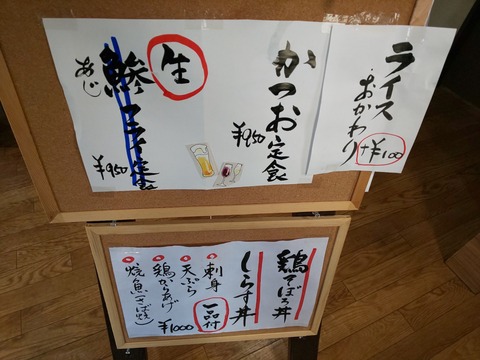 ライス
おかわり
+¥100
生
かつお定食
¥950
鯵フライ定食
あじ
¥950
鶏そぼろ丼
しらす丼
一品付
刺身
天ぷら
鶏からあげ
焼魚(さば焼)
¥1000